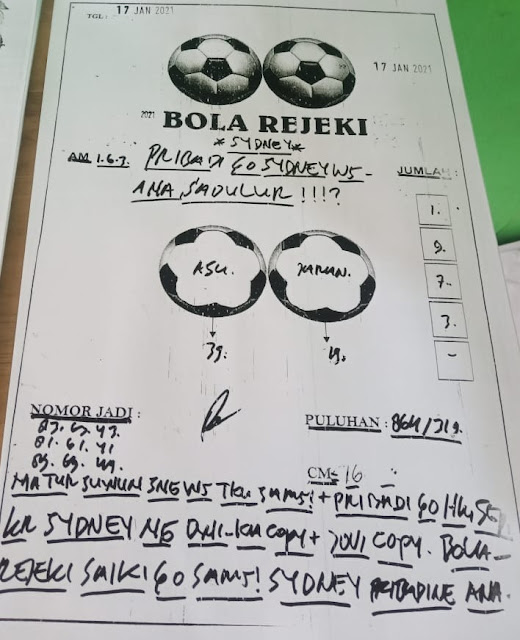 TGL: 17 JAN 2021
17 JAN 2021
2021 BOLA REJEKI
*SYDNEY*
AM 1.6.3. PRIBADI GO SYDNEY WS-
ANA SADULUR !!!?
JUMLAH :
1.
9.
7.
3.
-
ASLI.
39.
49.
NOMOR JADI :
83. 63. 43.
81. 61. 41
89. 69. 49.
PULUHAN : 864/319.
CM= 16
MATUR SUWUN SNEWS TKU SAMS! + PRIBADI GO HK. SEP.
KR SYDNEY NE COPY + JOVI COPY. BOLA-
REJEKI SAIKI GO SAMS! SYDNEY PRIBADINE ANA.